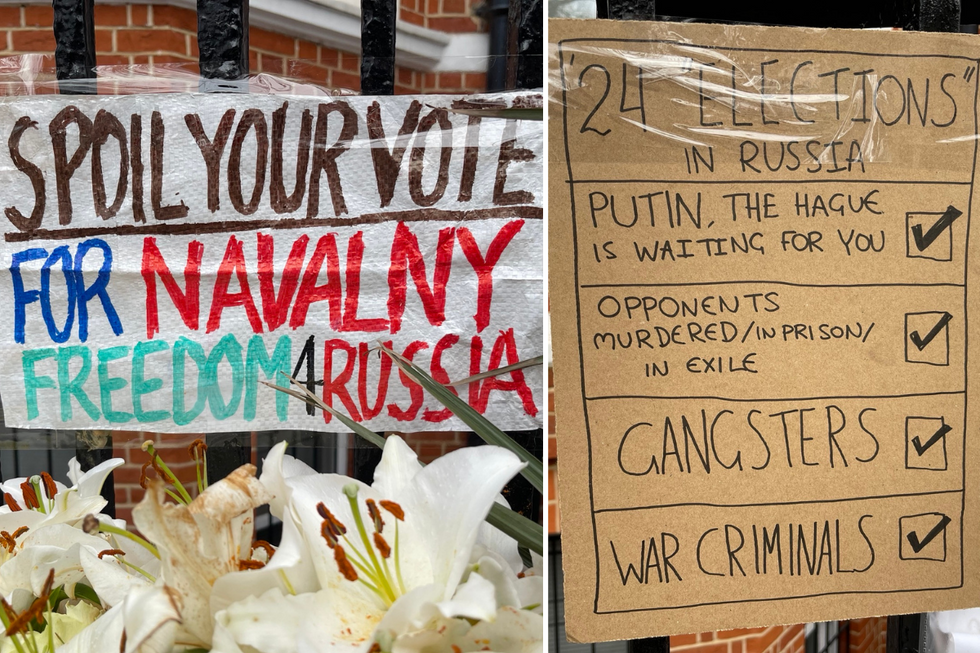 SPOIL YOUR VOTE
FOR NAVALNY
FREEDOM4RUSSIA
'24 "ELECTIONS"
IN RUSSIA
PUTIN, THE HAGUE
IS WAITING FOR YOU
OPPONENTS
MURDERED/IN PRISON/
IN EXILE
GANGSTERS
WAR CRIMINALS